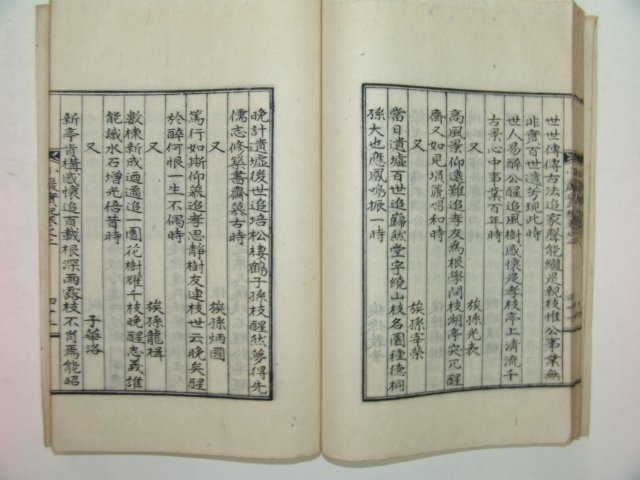 世世傳傳古法追家聲能繼是利枝惟公事業無
非責百世遺芳現此時
世人易醉公醒追風樹感懷是孝枝亭上清流千
古景心中事業百年時
又 族孫光表
高風景仰遠難追孝友爲根學問枝湖亭突兀醒
齋又如見塤箎唱和時
又 族孫宰榮
當日遺墟百世追巋然堂宇繞山枝名園種德桐
孫大也應鳳鳴振一時
晚計遺墟後世追培松棲鶴子孫枝醒然夢得先
儒志修葺書齋慕古時
又 族孫炳國
篤行如斯仰慕追孝思靜樹友連枝世云晚矣醒
於醉何恨一生不偶時
又 族孫龍楫
數棟新成通適追一園花樹耀千枝晚醒志義誰
能識水石增光倍昔時
又 子華洛
新亭肯構感懷追百載根深雨露枝不肖焉能昭